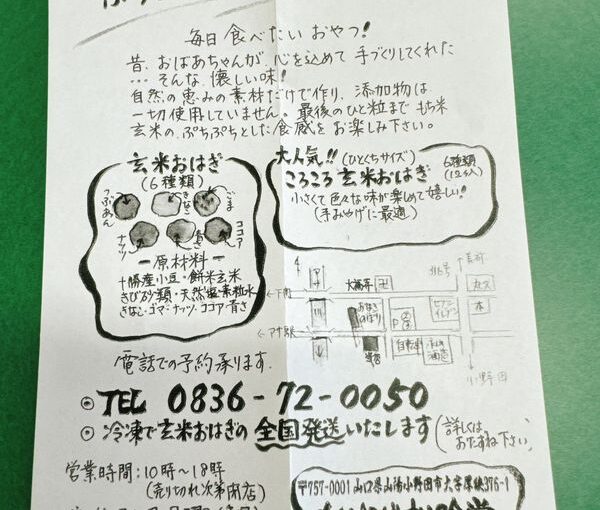 毎日 食べたい おやつ!
昔、おばあちゃんが、心を込めて 手づくりしてくれた
… そんな、懐しい味!
自然の恵みの素材だけで作り、添加物は
一切使用していません。最後のひと粒まで もち米
玄米の、ぷちぷちとした食感をお楽しみ下さい。
玄米おはぎ
(6種類)
つぶあん
きなこ
ごま
ナッツ
青さ
ココア
ー原材料ー
十勝産小豆・餅米玄米
きび砂糖・天然塩・素粒水
きなこ・ゴマ・ナッツ・ココア・青さ
大人気!! (ひとくちサイズ)
ころころ 玄米おはぎ
6種類
(12ケ入)
小さくて 色々な味が楽しめて嬉しい!
(手みやげに最適)
卍
P
自転車
セブン
イレブン
本
小野田
電話での予約承ります。
◎ TEL 0836-72-0050
◎ 冷凍で玄米おはぎの 全国発送いたします
(詳しくは、
おたずね下さい)
営業時間:10時〜18時
(売り切れ次第閉店)
〒757-0001 山口県山陽小野田市大字厚狭376-1